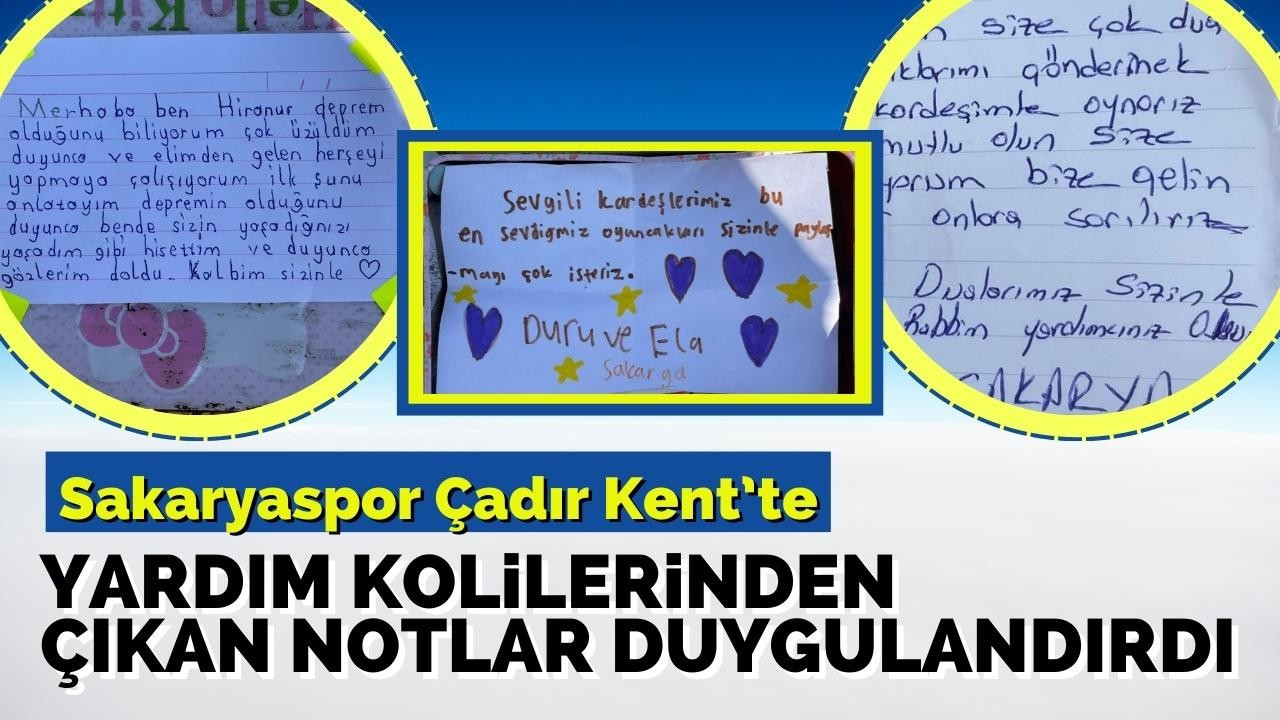 Hello Kitt
Merhaba ben Hiranur deprem
olduğunu biliyorum çok üzüldüm
duyunca ve elimden gelen herşeyi
yapmaya çalışıyorum ilk şunu
anlatayım depremin olduğunu
duyunca bende sizin yaşadığınızı
yaşadım gibi hisettim ve duyunca
gözlerim doldu. Kalbim sizinle ♡
Sevgili kardeşlerimiz bu
en sevdiğmiz oyuncakları sizinle paylaş
-mayı çok isteriz.
Duru ve Ela
Sakarya
size çok dua
klarımı göndermek
kardeşimle oynarız
mutlu olun size
yorum bize gelin
onlara sarılırız
Dualarımız Sizinle
Rabbim yardımcınız Olsun
SAKARYA
Sakaryaspor Çadır Kent'te
YARDIM KOLiLERiNDEN
ÇIKAN NOTLAR DUYGULANDIRDI